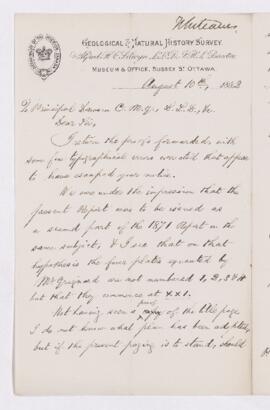 Whiteaves
GEOLOGICAL & NATURAL HISTORY SURVEY.
Alfred R. C. Selwyn, L.L.D., F.R.S., Director
MUSEUM & OFFICE, SUSSEX ST. OTTAWA.
August 10th, 1882
To Principal Dawson C. M. G., L.L.D., &c.
Dear Sir,
I return the proofs forwarded, with
some few typographical errors corrected that appear
to have escaped your notice.
We are under the impression that the
present Report was to be issued as
a second part of the 1871 Report on the
same subject, & I see that on that
hypothesis the four plates
by
Mr are not numbered 1, 2, 3 & 4
but that they commence at XXI.
Not having seen a proof of the title page
I do not know what plan has been adopted,
but if the present paging is to stand, should